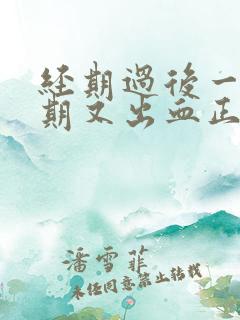 经期過後一
期又出血正
潘雪菲
未经同意禁止转载